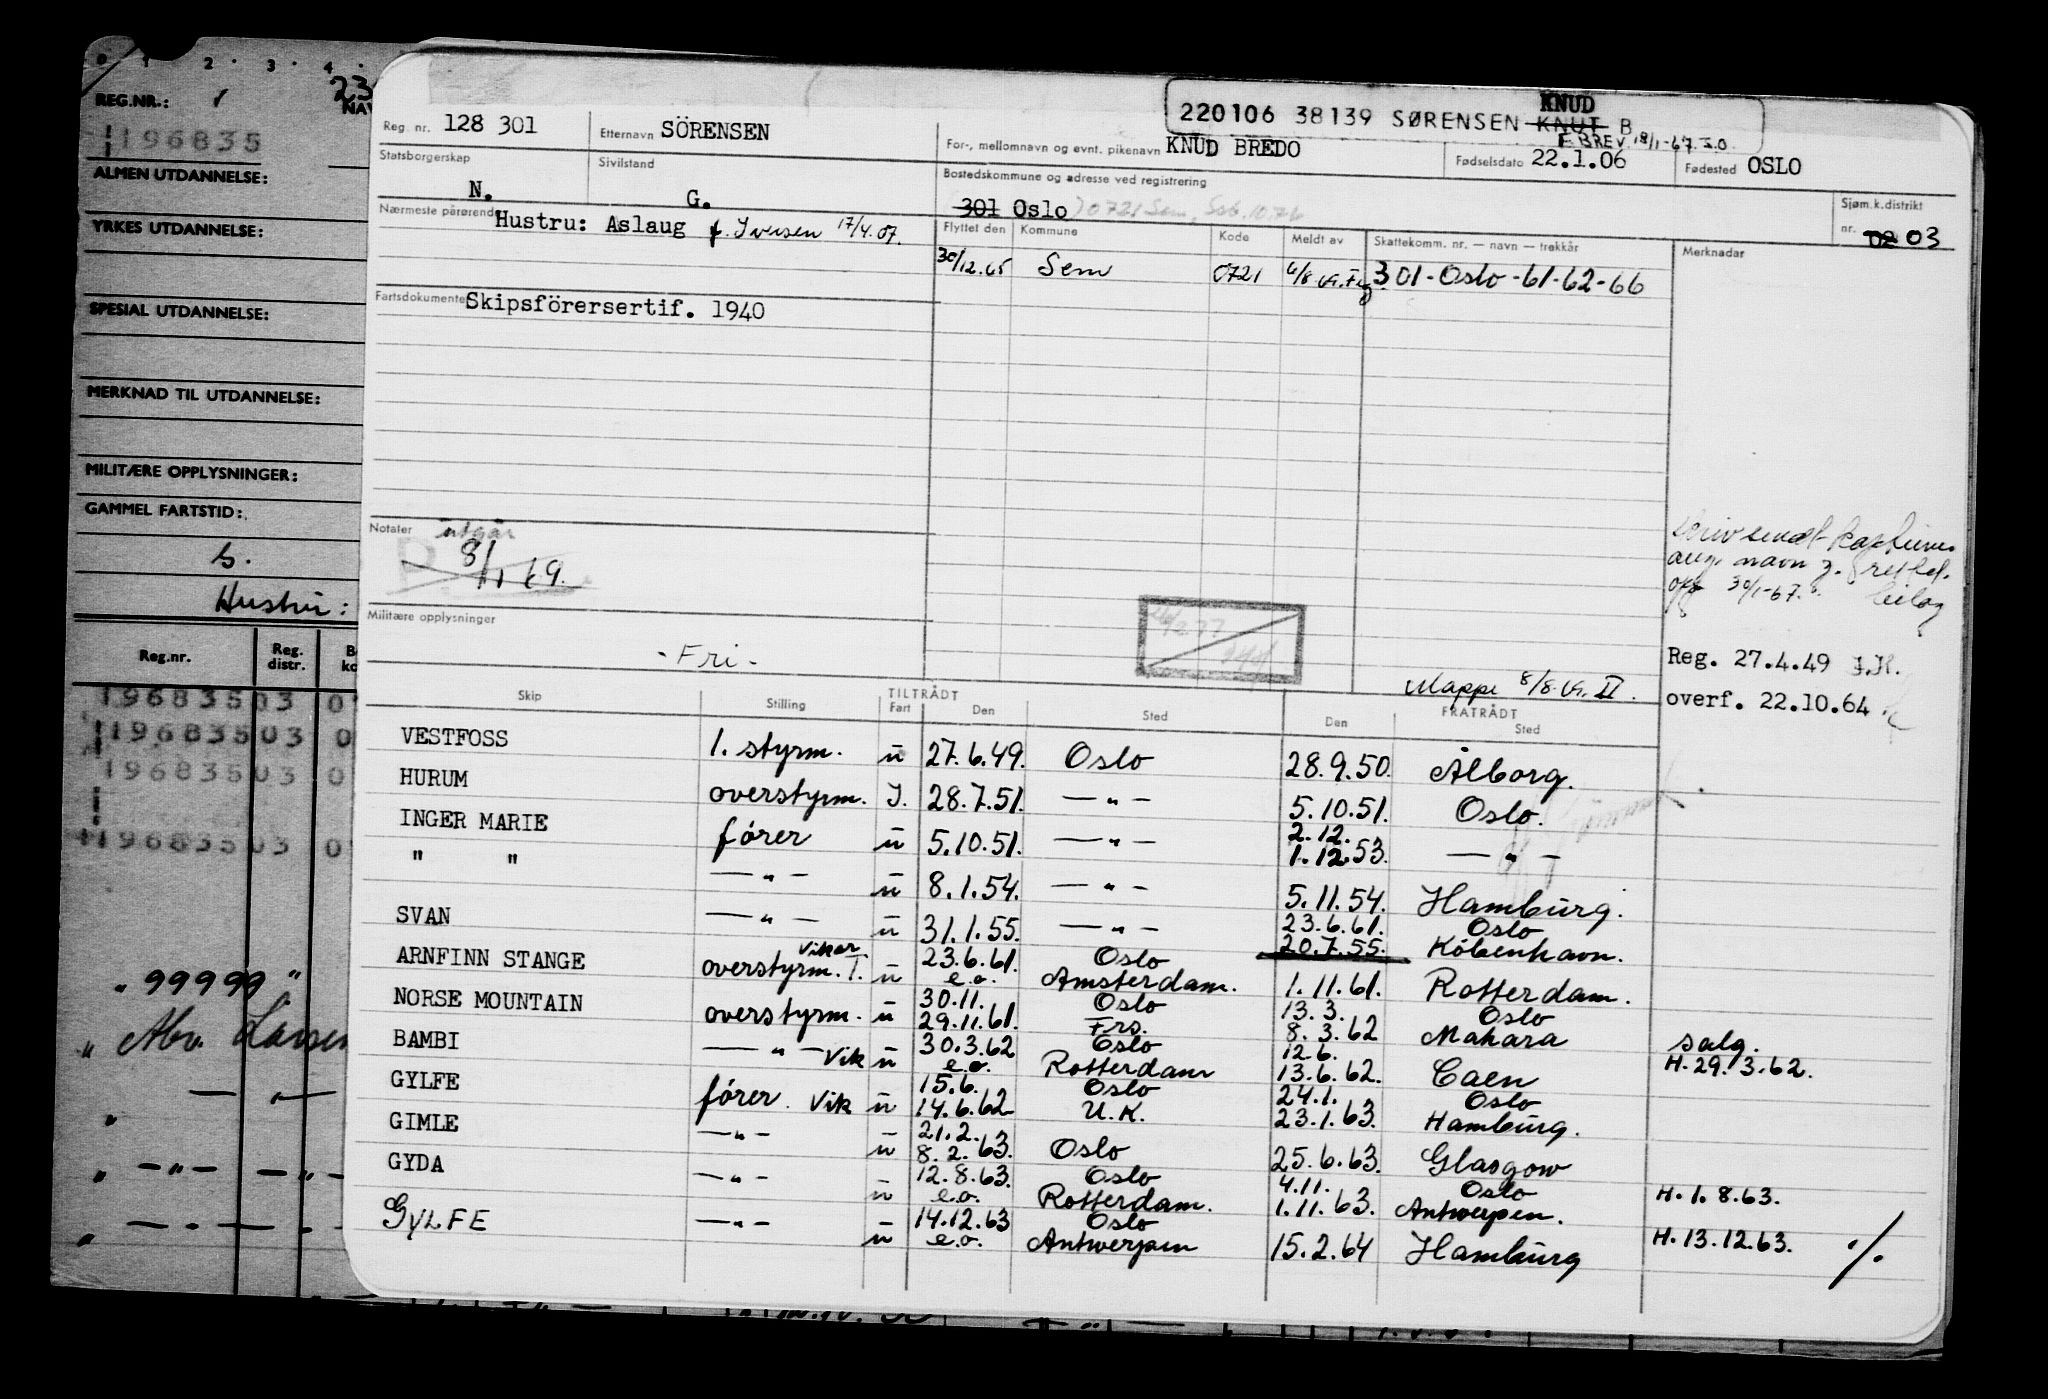 0 1 2 · 3 · 4 ·
REG.NR.:
23
NAV
196835
ALMEN UTDANNELSE:
YRKES UTDANNELSE:
SPESIAL UTDANNELSE:
MERKNAD TIL UTDANNELSE:
MILITÆRE OPPLYSNINGER:
GAMMEL FARTSTID:
s.
Hustru:
Reg.nr. Reg. distr. B ko
196835 03 0
196835 03 0
196835 03 0
196835 03 0
" 99999 "
" Abr. Larsen
220106 38139 SØRENSEN KNUT B
KNUD
F. BREV 18/1-67. I.O.
Reg. nr. 128 301 Etternavn SÖRENSEN For-, mellomnavn og evnt. pikenavn KNUD BREDO Fødselsdato 22.1.06 Fødested OSLO
Statsborgerskap N. Sivilstand G. Bostedskommune og adresse ved registrering
301 Oslo ) 0721 Sem,
Sjøm.k.distrikt nr. 02 03
Nærmeste pårørende Hustru: Aslaug f. Iversen 17/4.07.
Flyttet den Kommune Kode Meldt av Skattekomm. nr. — navn — trekkår Merknadar
30/12.65 Sem 0721 301-Oslo-61-62-66
Fartsdokumenter Skipsförersertif. 1940
Notater utgår
8/1 69.
navn
30/1-67.
Militære opplysninger
- Fri -
Mappe 8/8. II.
Reg. 27.4.49
overf. 22.10.64
Skip Stilling TILTRÅDT Fart Den Sted FRATRÅDT Den Sted
VESTFOSS 1. styrm. u 27.6.49. Oslo 28.9.50. Ålborg.
HURUM overstyrm. I. 28.7.51. — " — 5.10.51. Oslo.
INGER MARIE fører u 5.10.51. — " — 2.12. 1.12.53. — " —
" " — " — u 8.1.54. — " — 5.11.54. Hamburg.
SVAN — " — u 31.1.55. — " — 23.6.61. Oslo
20.7.55. København.
ARNFINN STANGE overstyrm. Vikar T. u 23.6.61. Oslo
e.o. Amsterdam. 1.11.61. Rotterdam.
NORSE MOUNTAIN overstyrm. u 30.11. Oslo 13.3. Oslo
29.11.61. Frs. 8.3.62 Makara salg.
BAMBI — " — Vik u 30.3.62 Oslo 12.6. H. 29.3.62.
e.o. Rotterdam 13.6.62. Caen
GYLFE fører. Vik u 15.6. Oslo 24.1. Oslo
14.6.62 U.K. 23.1.63. Hamburg.
GIMLE — " — u 21.2.
8.2.63. Oslo 25.6.63. Glasgow
GYDA — " — u 12.8.63. Oslo 4.11. Oslo H. 1.8.63.
e.o. Rotterdam. 1.11.63. Antwerpen.
GYLFE — " — u 14.12.63 Oslo
e.o. Antwerpen 15.2.64 Hamburg H. 13.12.63. ./.